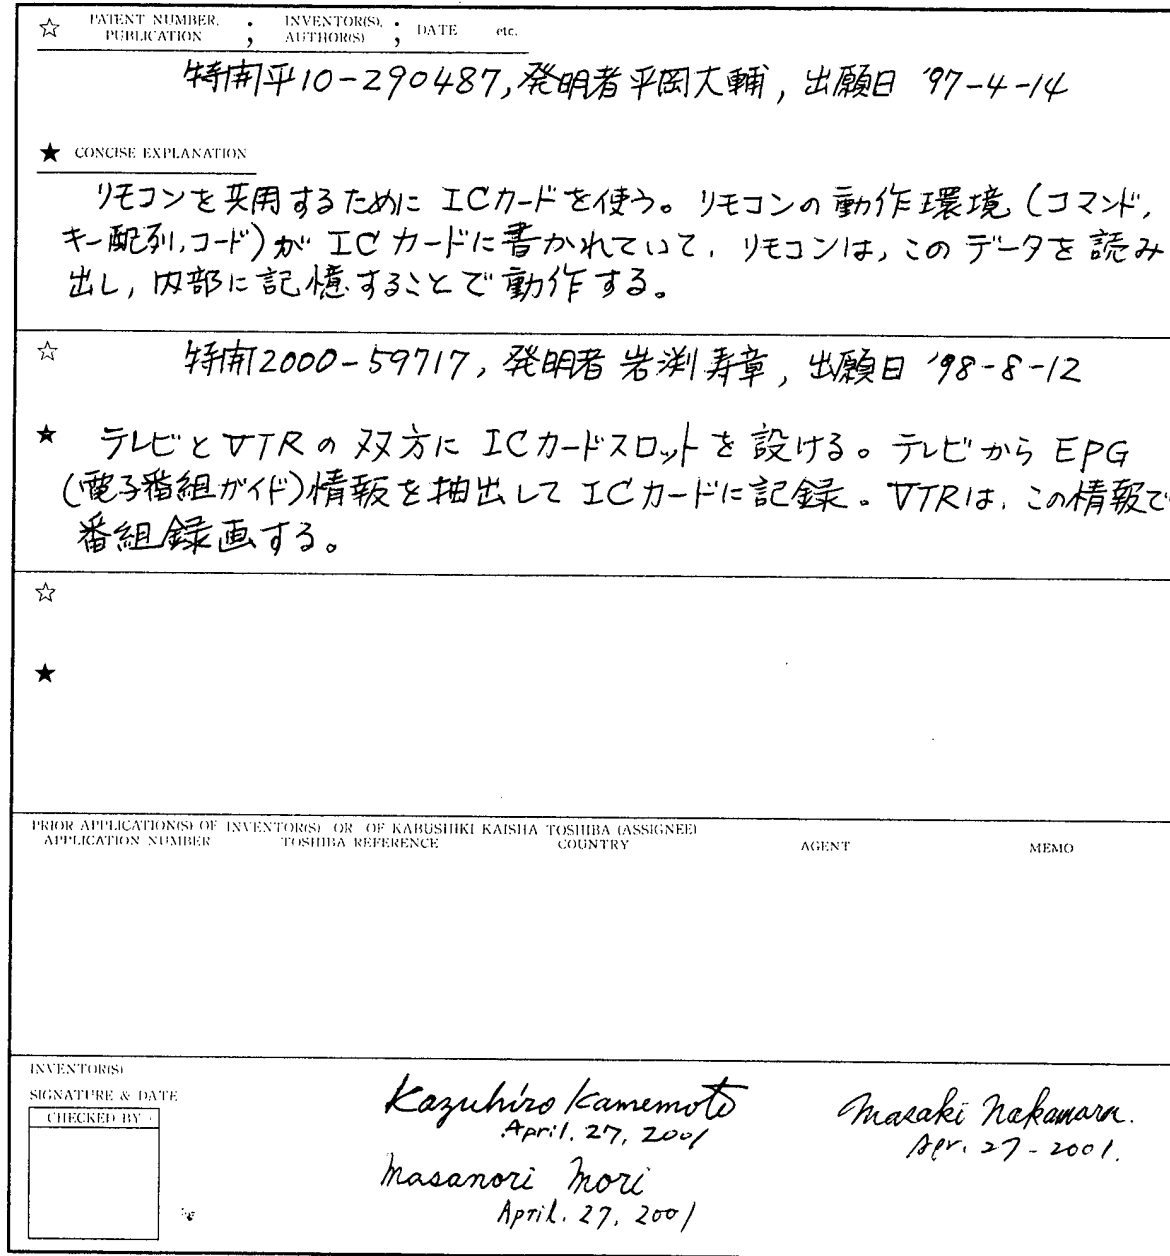 ☆ PATENT NUMBER, PUBLICATION ; INVENTOR(S), AUTHOR(S) ; DATE etc.
特開平10-290487, 発明者 平岡大輔, 出願日 '97-4-14
★ CONCISE EXPLANATION
リモコンを共用するために ICカードを使う。リモコンの動作環境(コマンド,
キー配列,コード)が ICカードに書かれていて, リモコンは, このデータを読み
出し, 内部に記憶することで動作する。
☆ 特開2000-59717, 発明者 岩渕寿章, 出願日 '98-8-12
★ テレビとVTRの双方に ICカードスロットを設ける。テレビから EPG
(電子番組ガイド)情報を抽出して ICカードに記録。VTRは, この情報で
番組録画する。
☆
★
PRIOR APPLICATION(S) OF INVENTOR(S) OR OF KABUSHIKI KAISHA TOSHIBA (ASSIGNEE)
APPLICATION NUMBER TOSHIBA REFERENCE COUNTRY AGENT MEMO
INVENTOR(S)
SIGNATURE & DATE
CHECKED BY
Kazuhiro Kamemoto
April. 27, 2001
Masaki Nakamara.
Apr. 27-2001.
Masanori Mori
April. 27, 2001